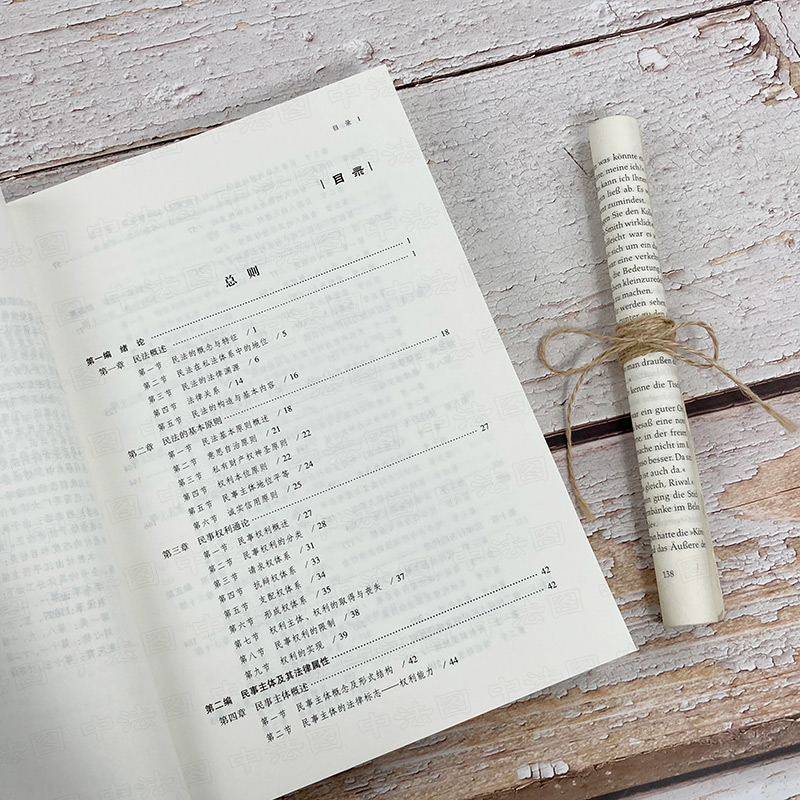 目 录 1
目 录
总 则
第一编 绪 论 1
第一章 民法概述 1
第一节 民法的概念与特征 / 1
第二节 民法在私法体系中的地位 / 5
第三节 民法的法律渊源 / 6
第四节 法律关系 / 14
第五节 民法的构造与基本内容 / 16
第二章 民法的基本原则 18
第一节 民法基本原则概述 / 18
第二节 意思自治原则 / 21
第三节 私有财产权神圣原则 / 22
第四节 权利本位原则 / 22
第五节 民事主体地位平等 / 24
第六节 诚实信用原则 / 25
第三章 民事权利通论 27
第一节 民事权利概述 / 27
第二节 民事权利的分类 / 28
第三节 请求权体系 / 31
第四节 抗辩权体系 / 33
第五节 支配权体系 / 34
第六节 形成权体系 / 35
第七节 权利主体、权利的取得与丧失 / 37
第八节 民事权利的限制 / 38
第九节 权利的实现 / 39
第二编 民事主体及其法律属性 42
第四章 民事主体概述 42
第一节 民事主体概念及形式结构 / 42
第二节 民事主体的法律标志——权利能力 / 44
was könnte
meine ich?
kann ich Ihne
ließ ab. Es
zumindest.
Sie den Kol
Smith wirklich
lleicht war es
sich um ein
eine verkeh
die Bedeutung
kleinzurede
zu machen.
werden sehen
man draußen
kenne die Tisc
war ein guter O
besaß eine
in der frem
nicht im
besser. Da
ist auch da.«
gleich, Riwal.«
ging die Stad
hatte die »Kin
das Äußere de
138